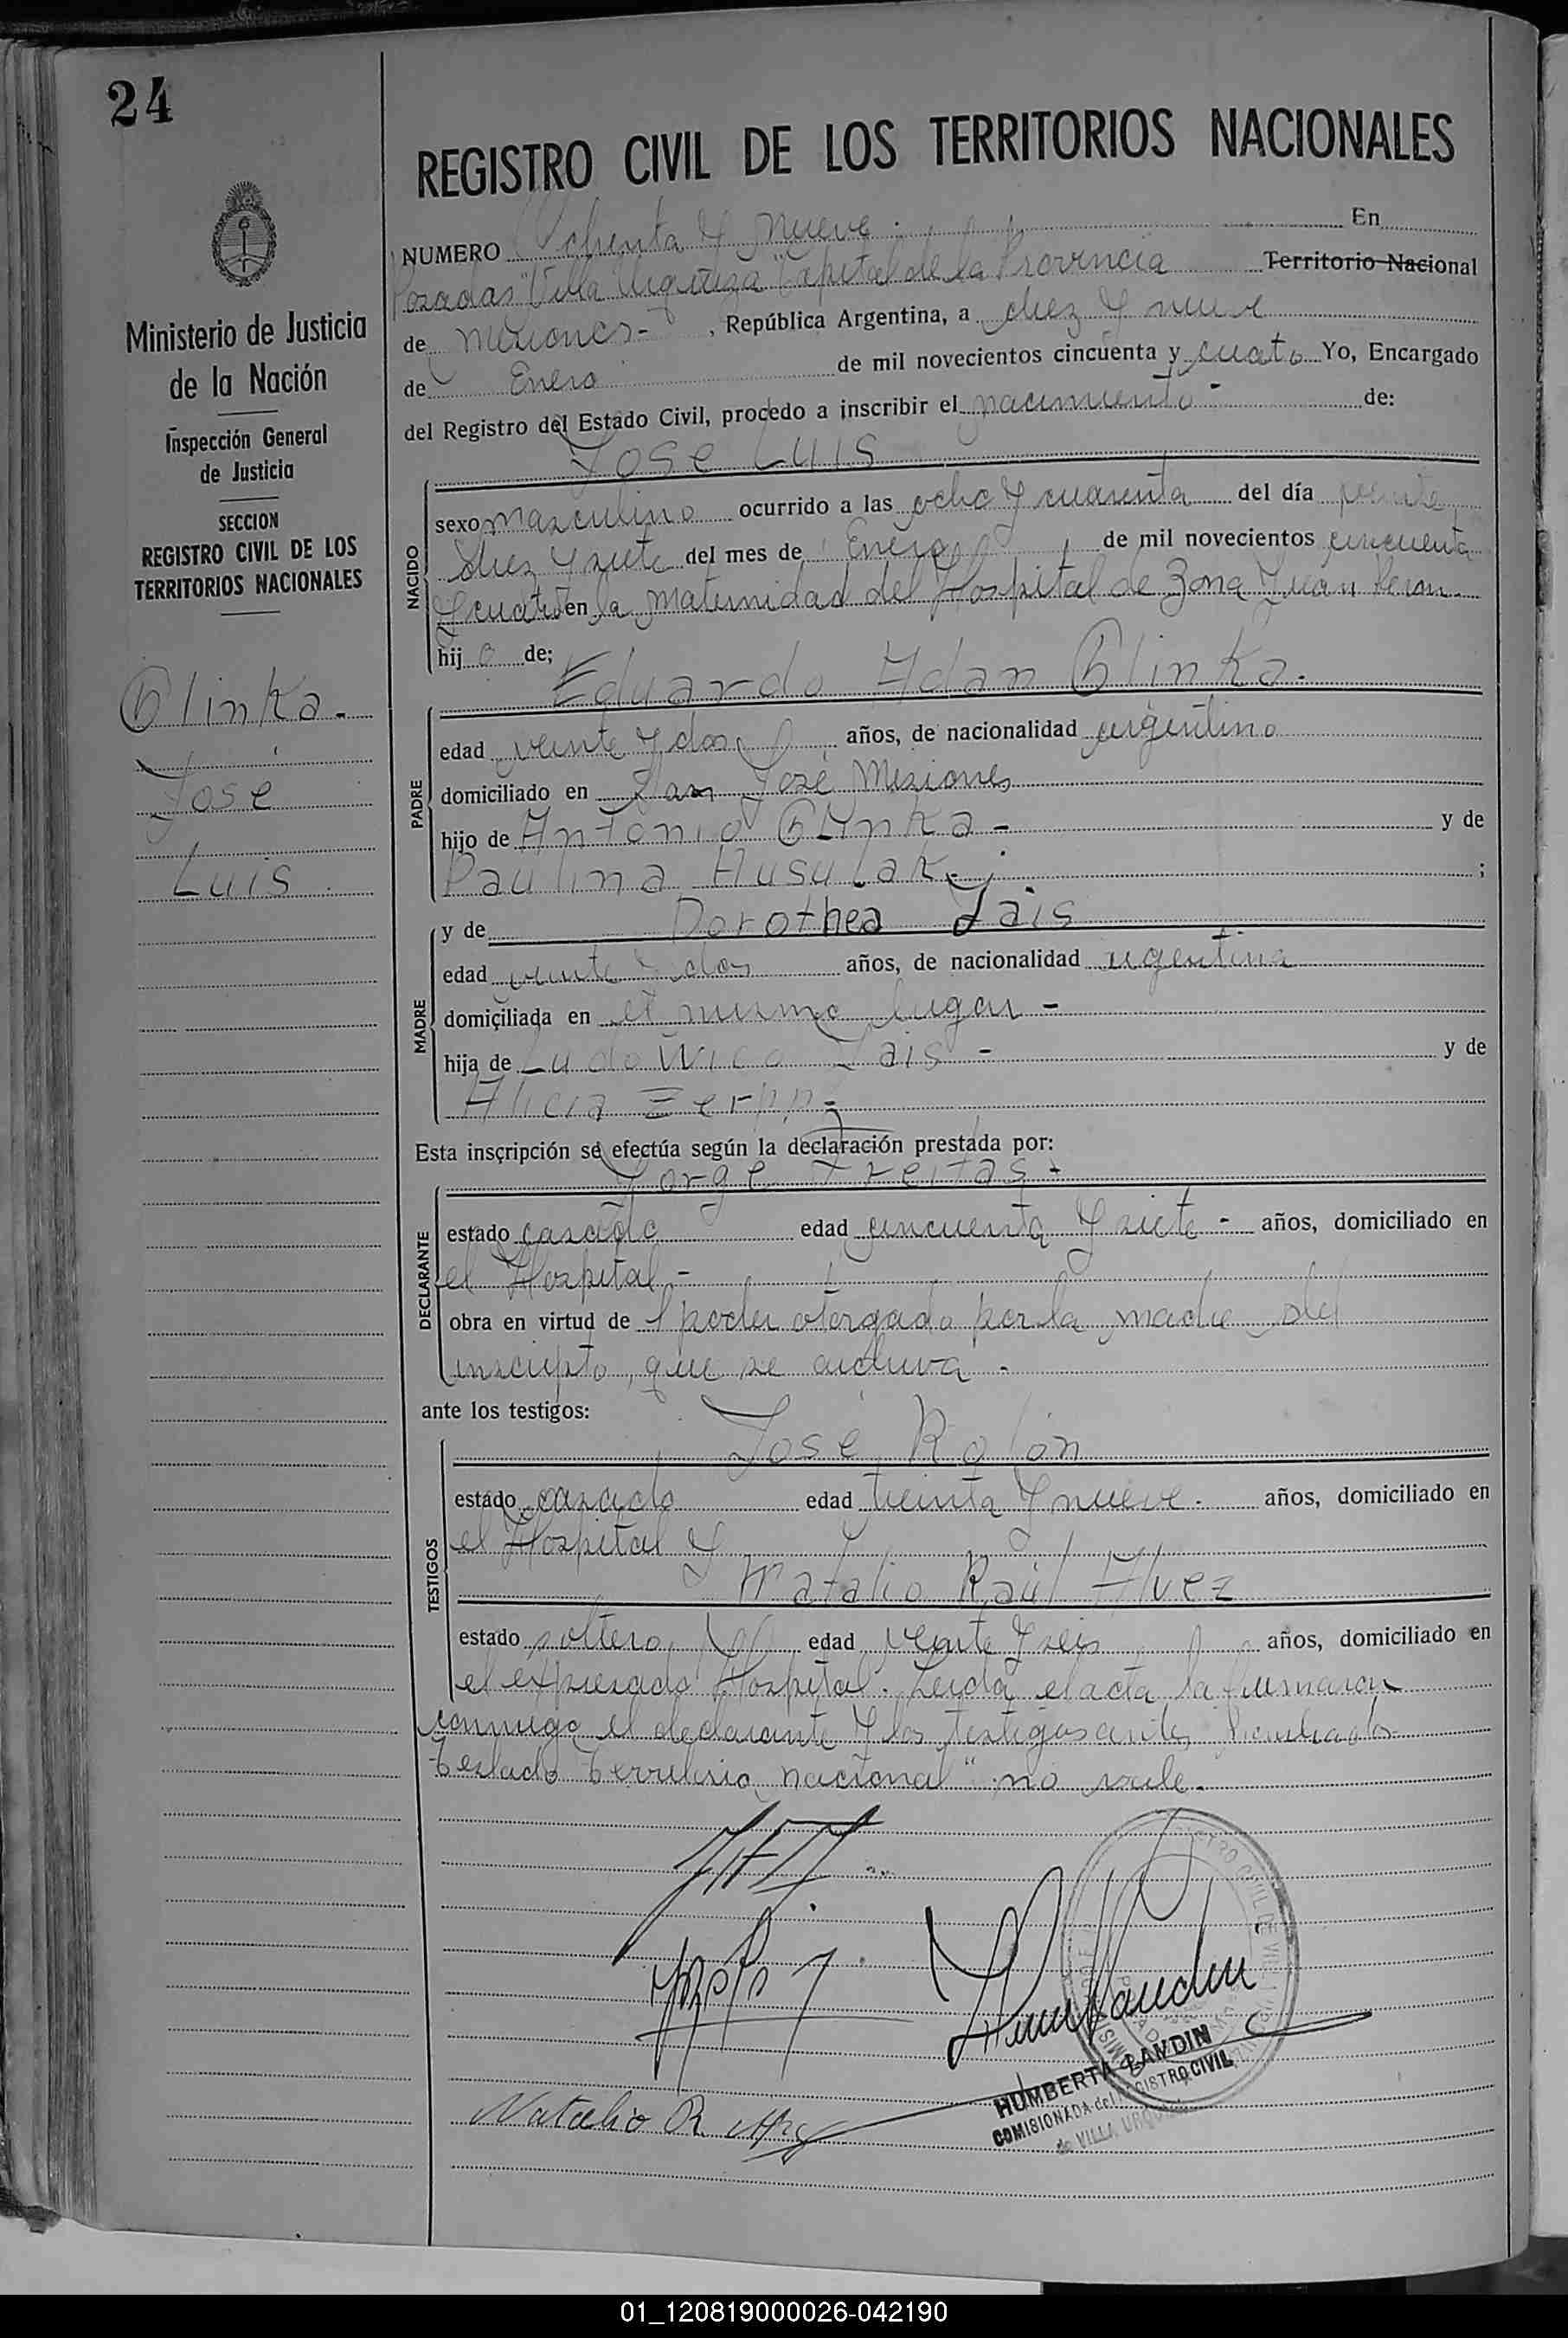 24
REGISTRO CIVIL DE LOS TERRITORIOS NACIONALES
Ministerio de Justicia
de la Nación
Inspección General
de Justicia
SECCION
REGISTRO CIVIL DE LOS
TERRITORIOS NACIONALES
Glinka.-
José
Luis
NUMERO Ochenta y nueve. En
Posadas "Villa Urquiza" Capital de la Provincia Territorio Nacional
de Misiones- , República Argentina, a diez y nueve
de Enero de mil novecientos cincuenta y cuatro Yo, Encargado
del Registro del Estado Civil, procedo a inscribir el nacimiento - de:
José Luis
NACIDO
sexo masculino ocurrido a las ocho y cuarenta del día
diez y siete del mes de Enero de mil novecientos cincuenta
y cuatro en la maternidad del Hospital de Zona Juan Peron.
hijo de;
Eduardo Adan Glinka.
PADRE
edad veinte y dos años, de nacionalidad argentino
domiciliado en San José Misiones
hijo de Antonio Glinka - y de
Paulina Husulak.- ;
MADRE
y de Dorothea Jais
edad veinte y dos años, de nacionalidad argentina
domiciliada en el mismo lugar -
hija de Ludowico Jais - y de
Alicia Zerpp-
Esta inscripción se efectúa según la declaración prestada por:
Jorge Freitas -
DECLARANTE
estado casado edad cincuenta y siete - años, domiciliado en
el Hospital -
obra en virtud de poder otorgado por la madre del
inscripto, que se archiva -
ante los testigos:
TESTIGOS
José Rolón
estado casado edad treinta y nueve - años, domiciliado en
el Hospital y
Natalio Raúl Alvez
estado soltero edad veinte y seis años, domiciliado en
el expresado Hospital. Leida el acta la firmaron
conmigo el declarante y los testigos antes nombrados
testado territorio nacional" no vale.
Natalio R.
HUMBERTA LANDIN
COMISIONADA del REGISTRO CIVIL
de VILLA URQUIZA
01_120819000026-042190